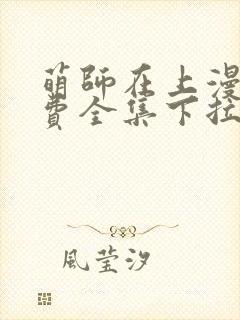 萌師在上漫
費全集下拉
風莹汐